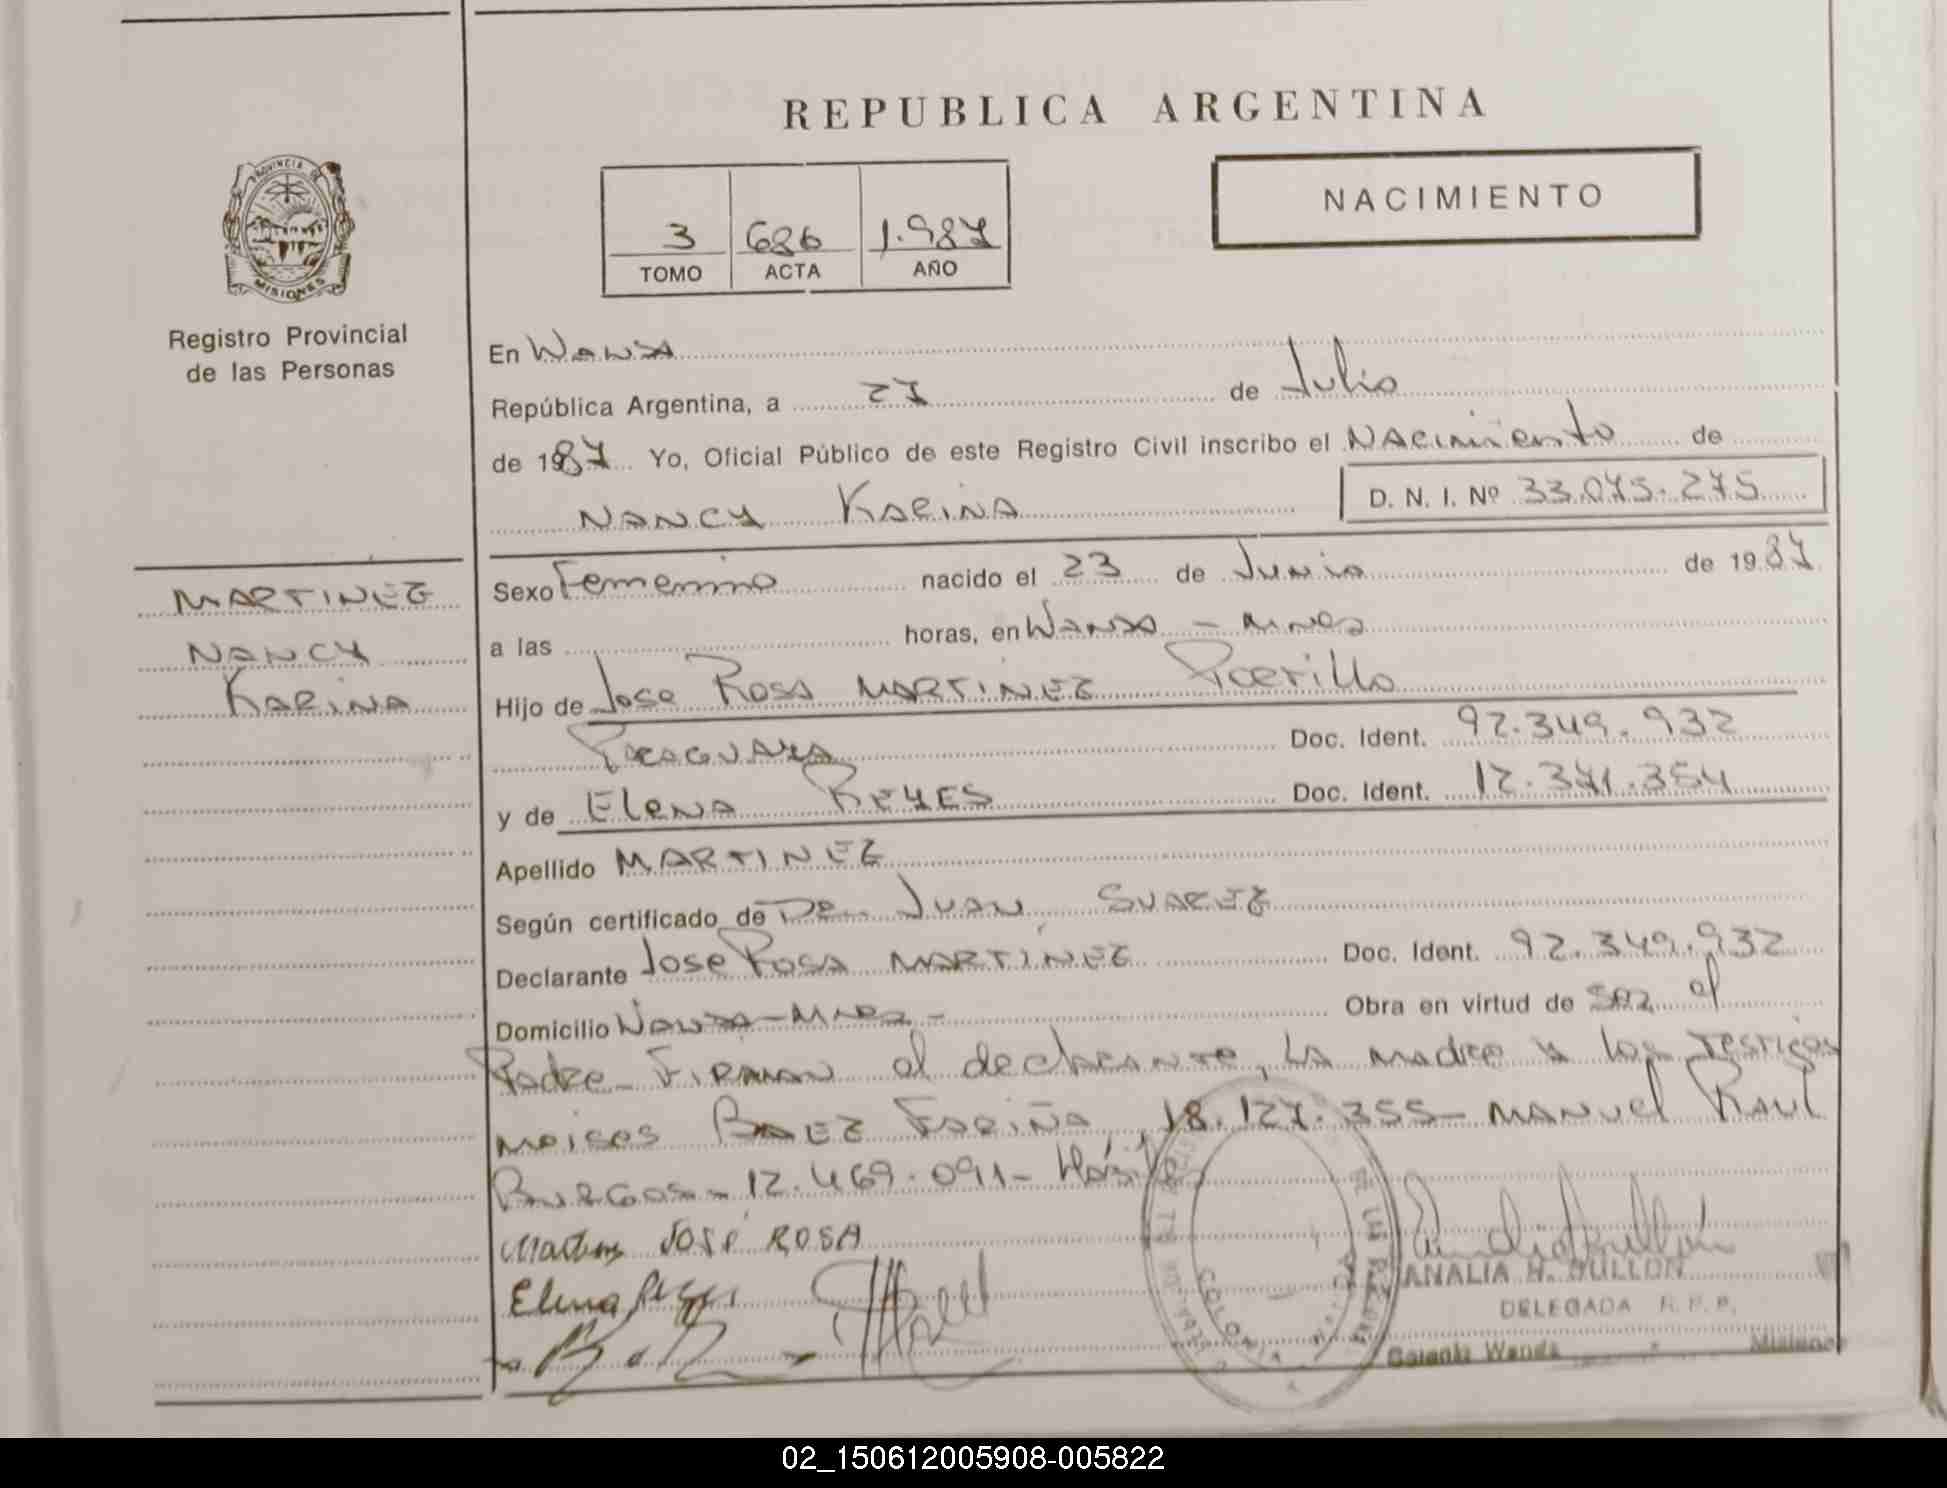 REPUBLICA ARGENTINA
PROVINCIA DE
MISIONES
Registro Provincial
de las Personas
3 686 1.987
TOMO ACTA AÑO
NACIMIENTO
En Wanda
República Argentina, a 27 de Julio
de 1987 Yo, Oficial Público de este Registro Civil inscribo el Nacimiento de
NANCY KARINA D. N. I. Nº 33.075.275
MARTINEZ
NANCY
KARINA
Sexo Femenino nacido el 23 de Junio de 1987
a las horas, en Wanda - Mnes
Hijo de Jose Rosa MARTINEZ
Paraguaya Doc. Ident. 92.349.932
y de Elena REYES Doc. Ident. 12.371.354
Apellido MARTINEZ
Según certificado de Dr. Juan SUAREZ
Declarante Jose Rosa MARTINEZ Doc. Ident. 92.349.932
Domicilio Wanda - Mnes - Obra en virtud de ser el
Padre - Firman el declarante, la madre y los Testigos
Moises BAEZ Fariña 18.127.355 - Manuel Raul
Burgos - 12.469.091 - Hábiles
Martinez JOSÉ ROSA
Elena Reyes
ANALIA H. GULLON
DELEGADA R. P. P.
Colonia Wanda Misiones
02_150612005908-005822